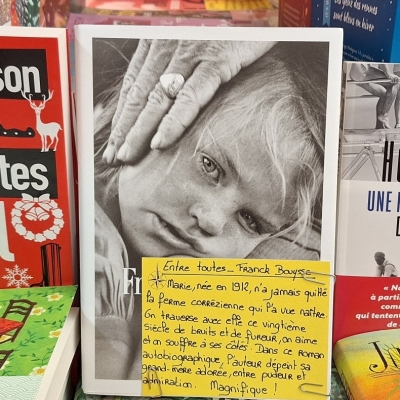 son
tes
Les yeux des rennes
sont bleus en hiver
Fr
Entre toutes_ Franck Bouysse
Marie, née en 1912, n'a jamais quitté
la ferme corrézienne qui l'a vue naître.
On traverse avec elle ce vingtième
siècle de bruits et de fureur, on aime
et on souffre à ses côtés. Dans ce roman
autobiographique, l'auteur dépeint sa
grand-mère adorée, entre pudeur et
admiration. Magnifique !
UNE
« No
à parti
comm
qui tenten
de